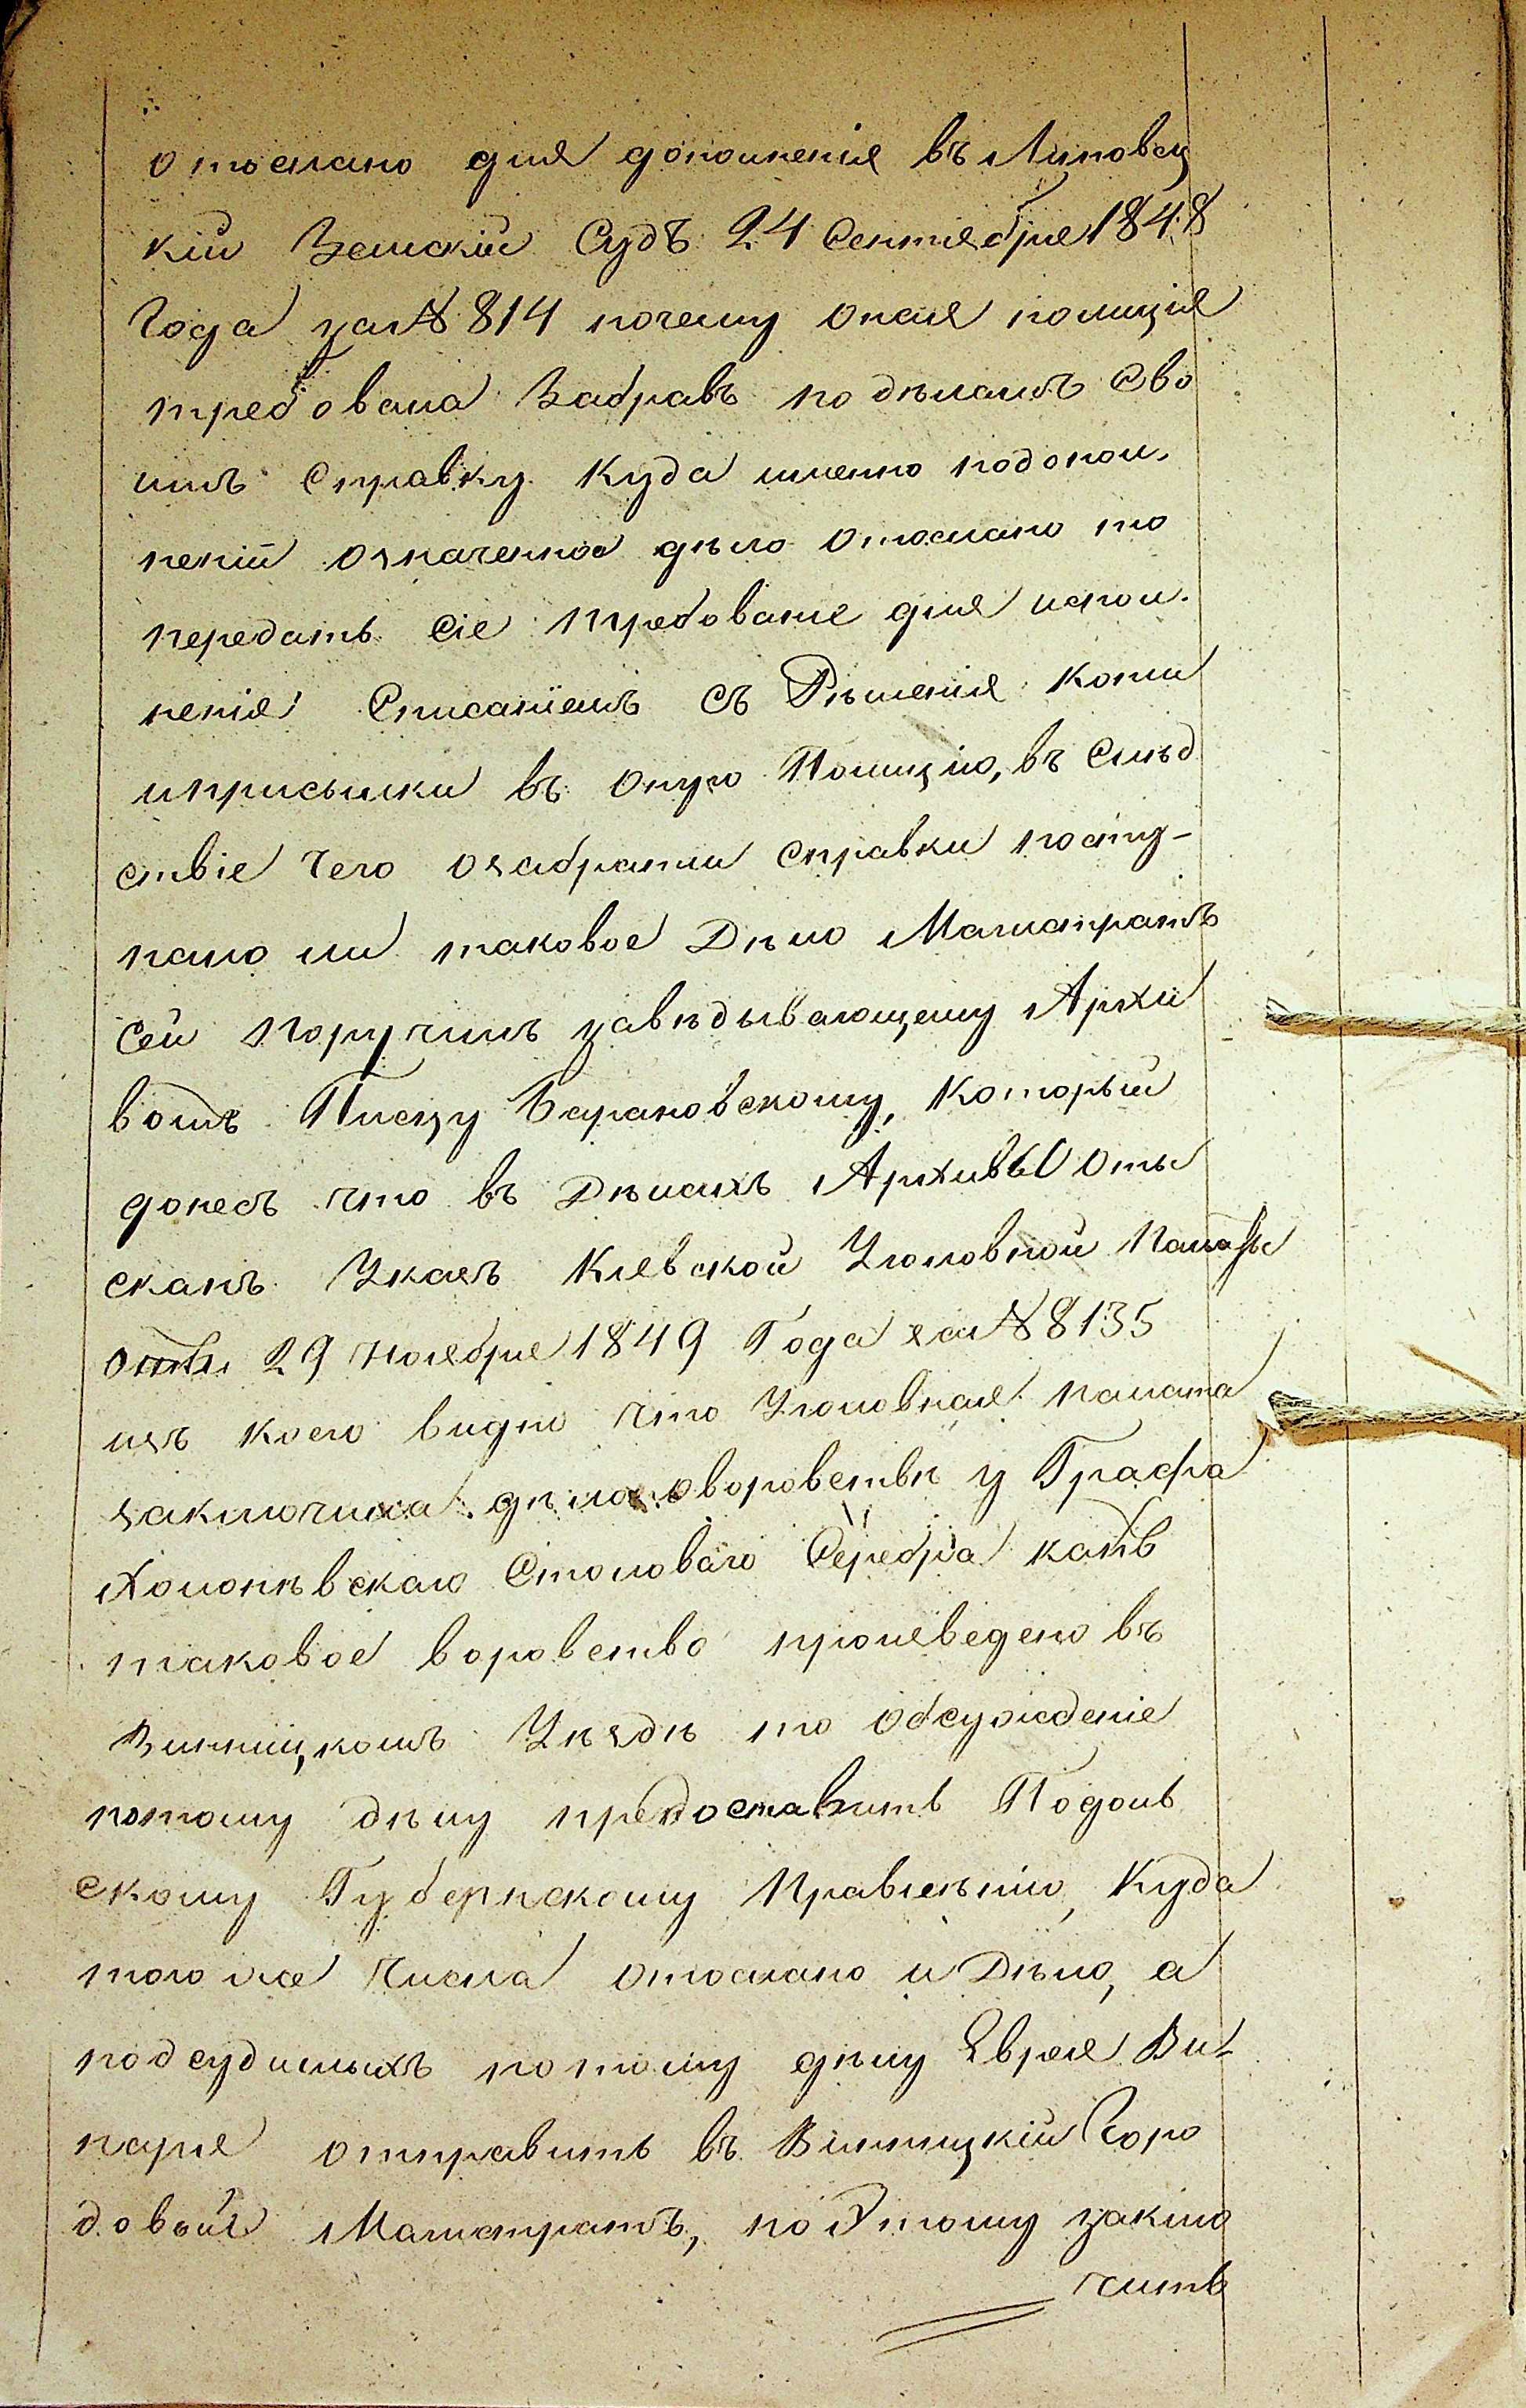 отослано для дополненія въ Липовец
кій Земскій Судъ 24 Сентября 1848
Года за № 814 почему оная полиція
требовала Забравъ по дѣламъ Сво
имъ Справку Куда именно подопол.
неній означенное дѣло отослано то
передать Сіе требованіе для испол.
ненія Списаніемъ съ Рѣшенія Копіи
иприсылки въ оную Полицію, въ Слѣд
ствіе Чего озабраніи Справки посту-
пало ли таковое Дѣло Магистратъ
Сей Поручилъ завѣдывающему Архи
вомъ Писцу Барановскому, Который
донесъ что въ Дѣлахъ Архивы Оты
сканъ Указъ Кіевской Уголовной Палаты
отъ 29 Ноября 1849 Года за № 8135
изъ коего видно что Уголовная палата
заключила: дѣло оворовствѣ у Графа
Холонѣвскаго Столоваго Серебра какъ
таковое воровство произведено въ
Винницкомъ Уѣздѣ то обсужденіе
потому дѣлу предоставить Подоль
скому Губернскому Правленію, Куда
того же Числа отослано и Дѣло, а
подсудимыхъ потому дѣлу Еврея Ви-
наря отправить въ Винницкій Горо
довый Магистратъ, по Этому заклю
чить